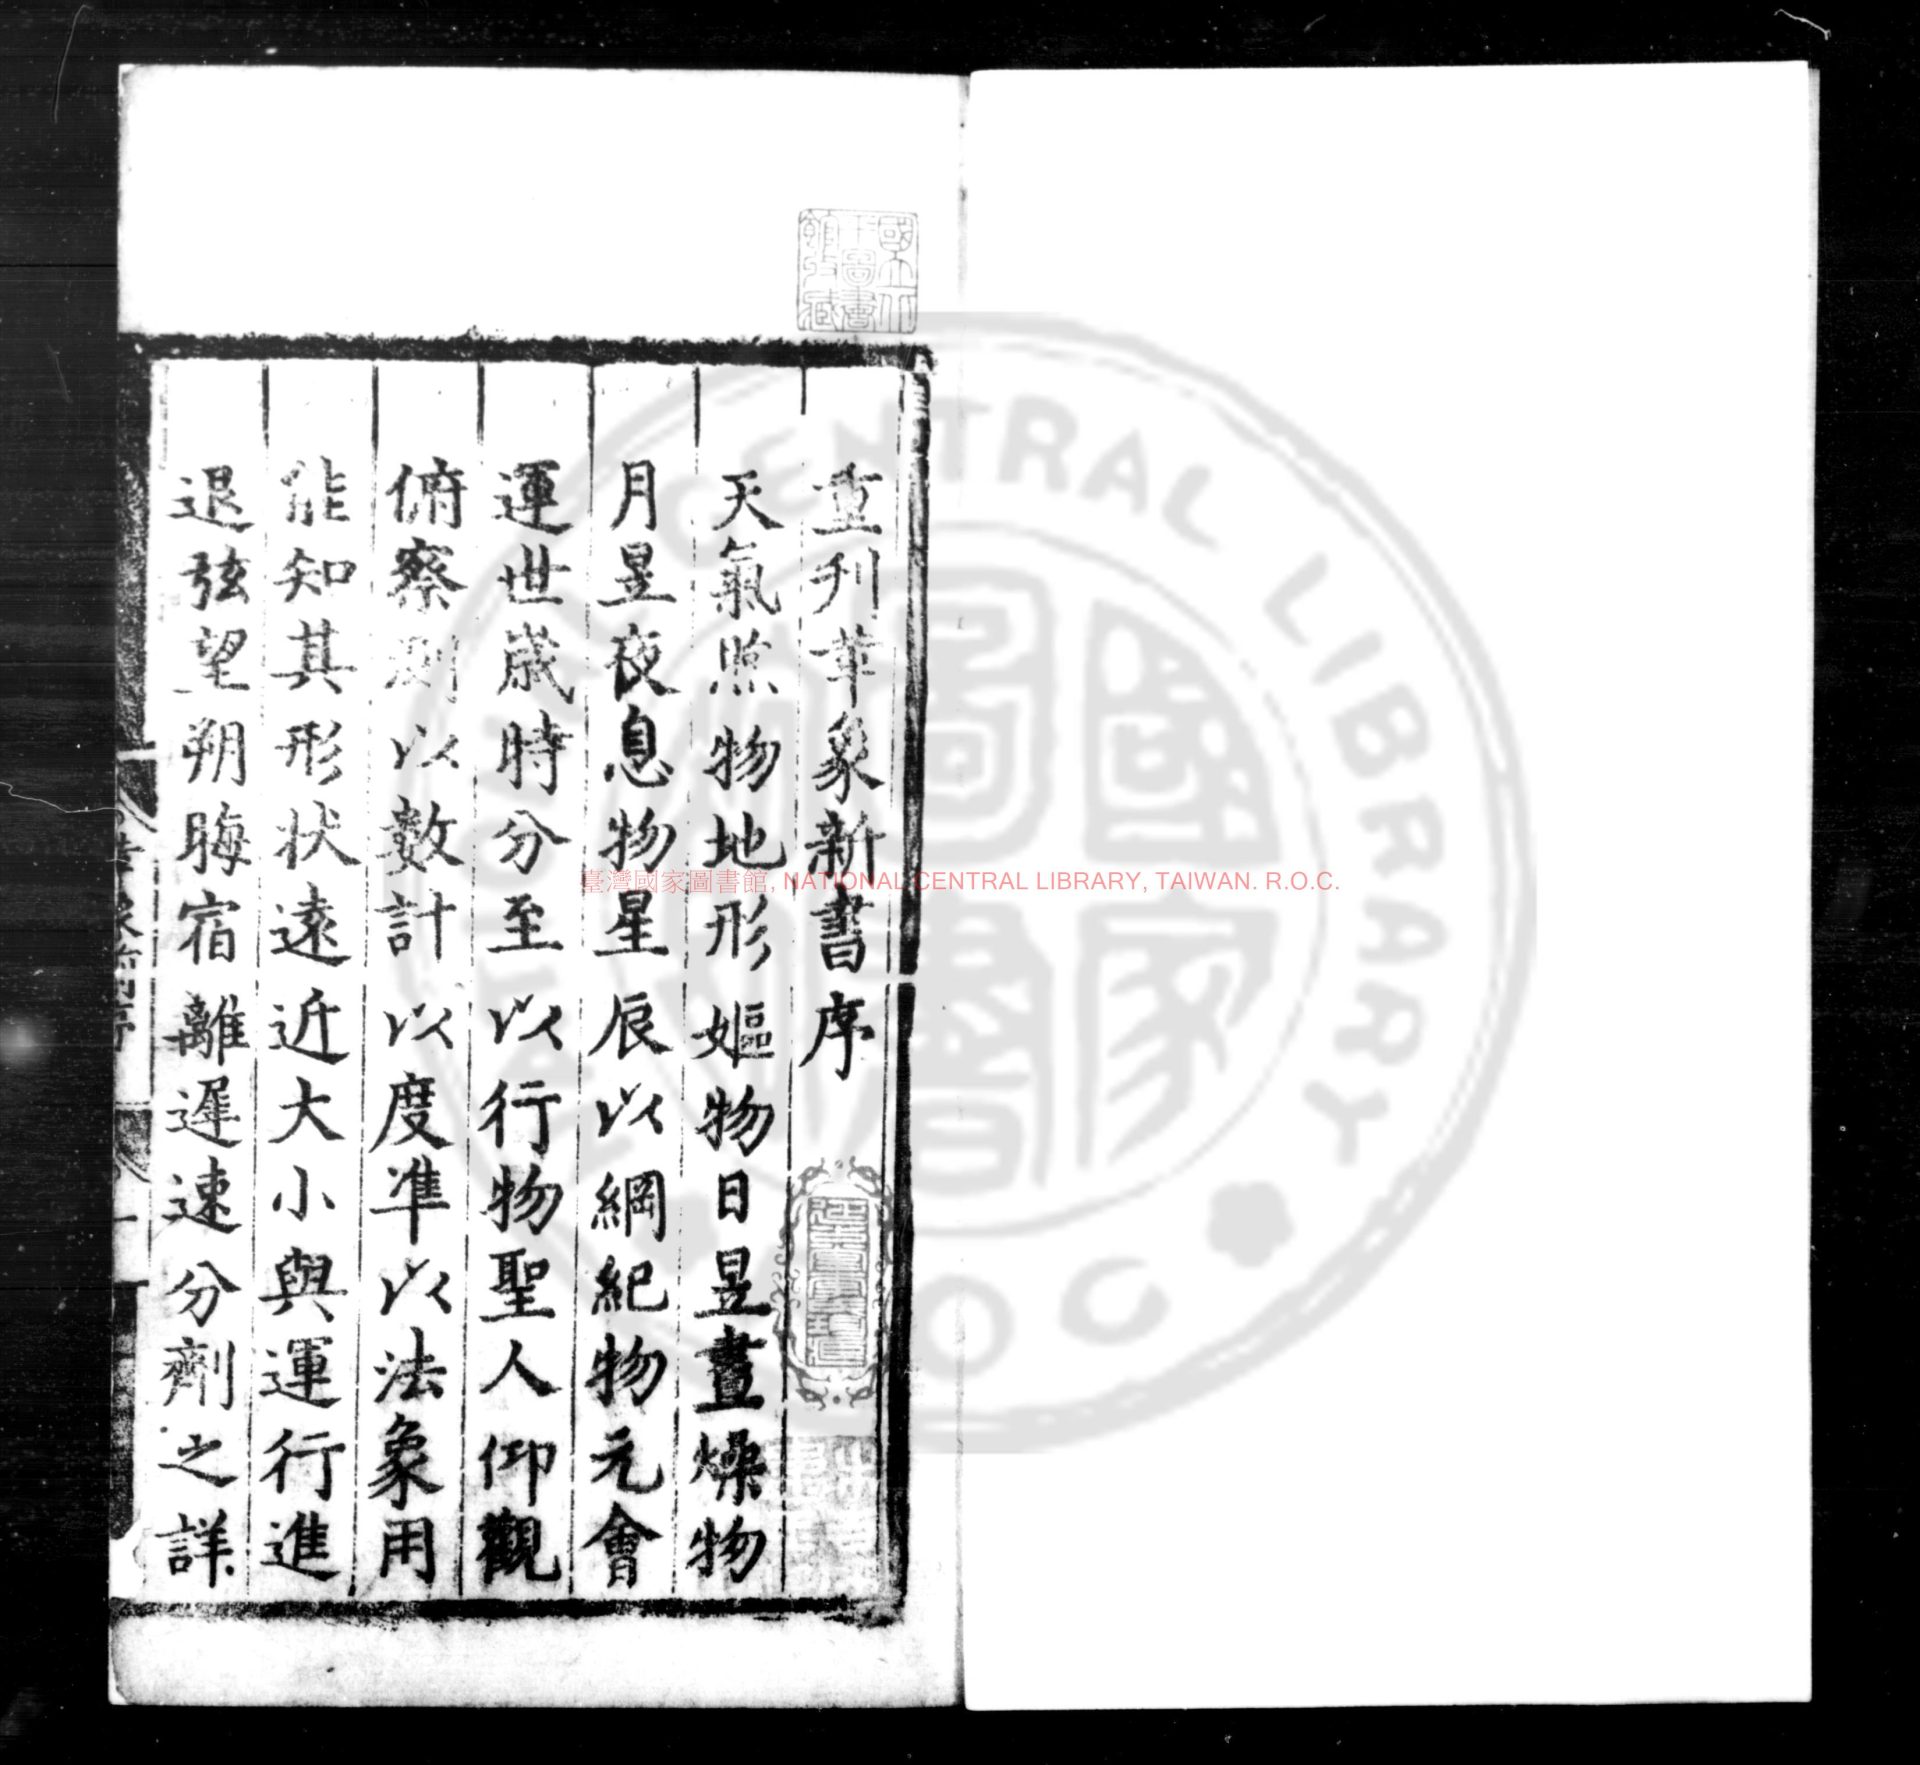 重刋革象新書序
天氣煦物地形嫗物日昱晝燥物
月昱夜息物星辰以綱紀物元會
運世歲時分至以行物聖人仰觀
俯察測以數計以度凖以法象用
能知其形狀遠近大小與運行進
退弦望朔晦宿離遲速分劑之詳
國立中央圖書館收藏
臺灣國家圖書館, NATIONAL CENTRAL LIBRARY, TAIWAN. R.O.C.
NATIONAL CENTRAL LIBRARY
R.O.C
國家圖書